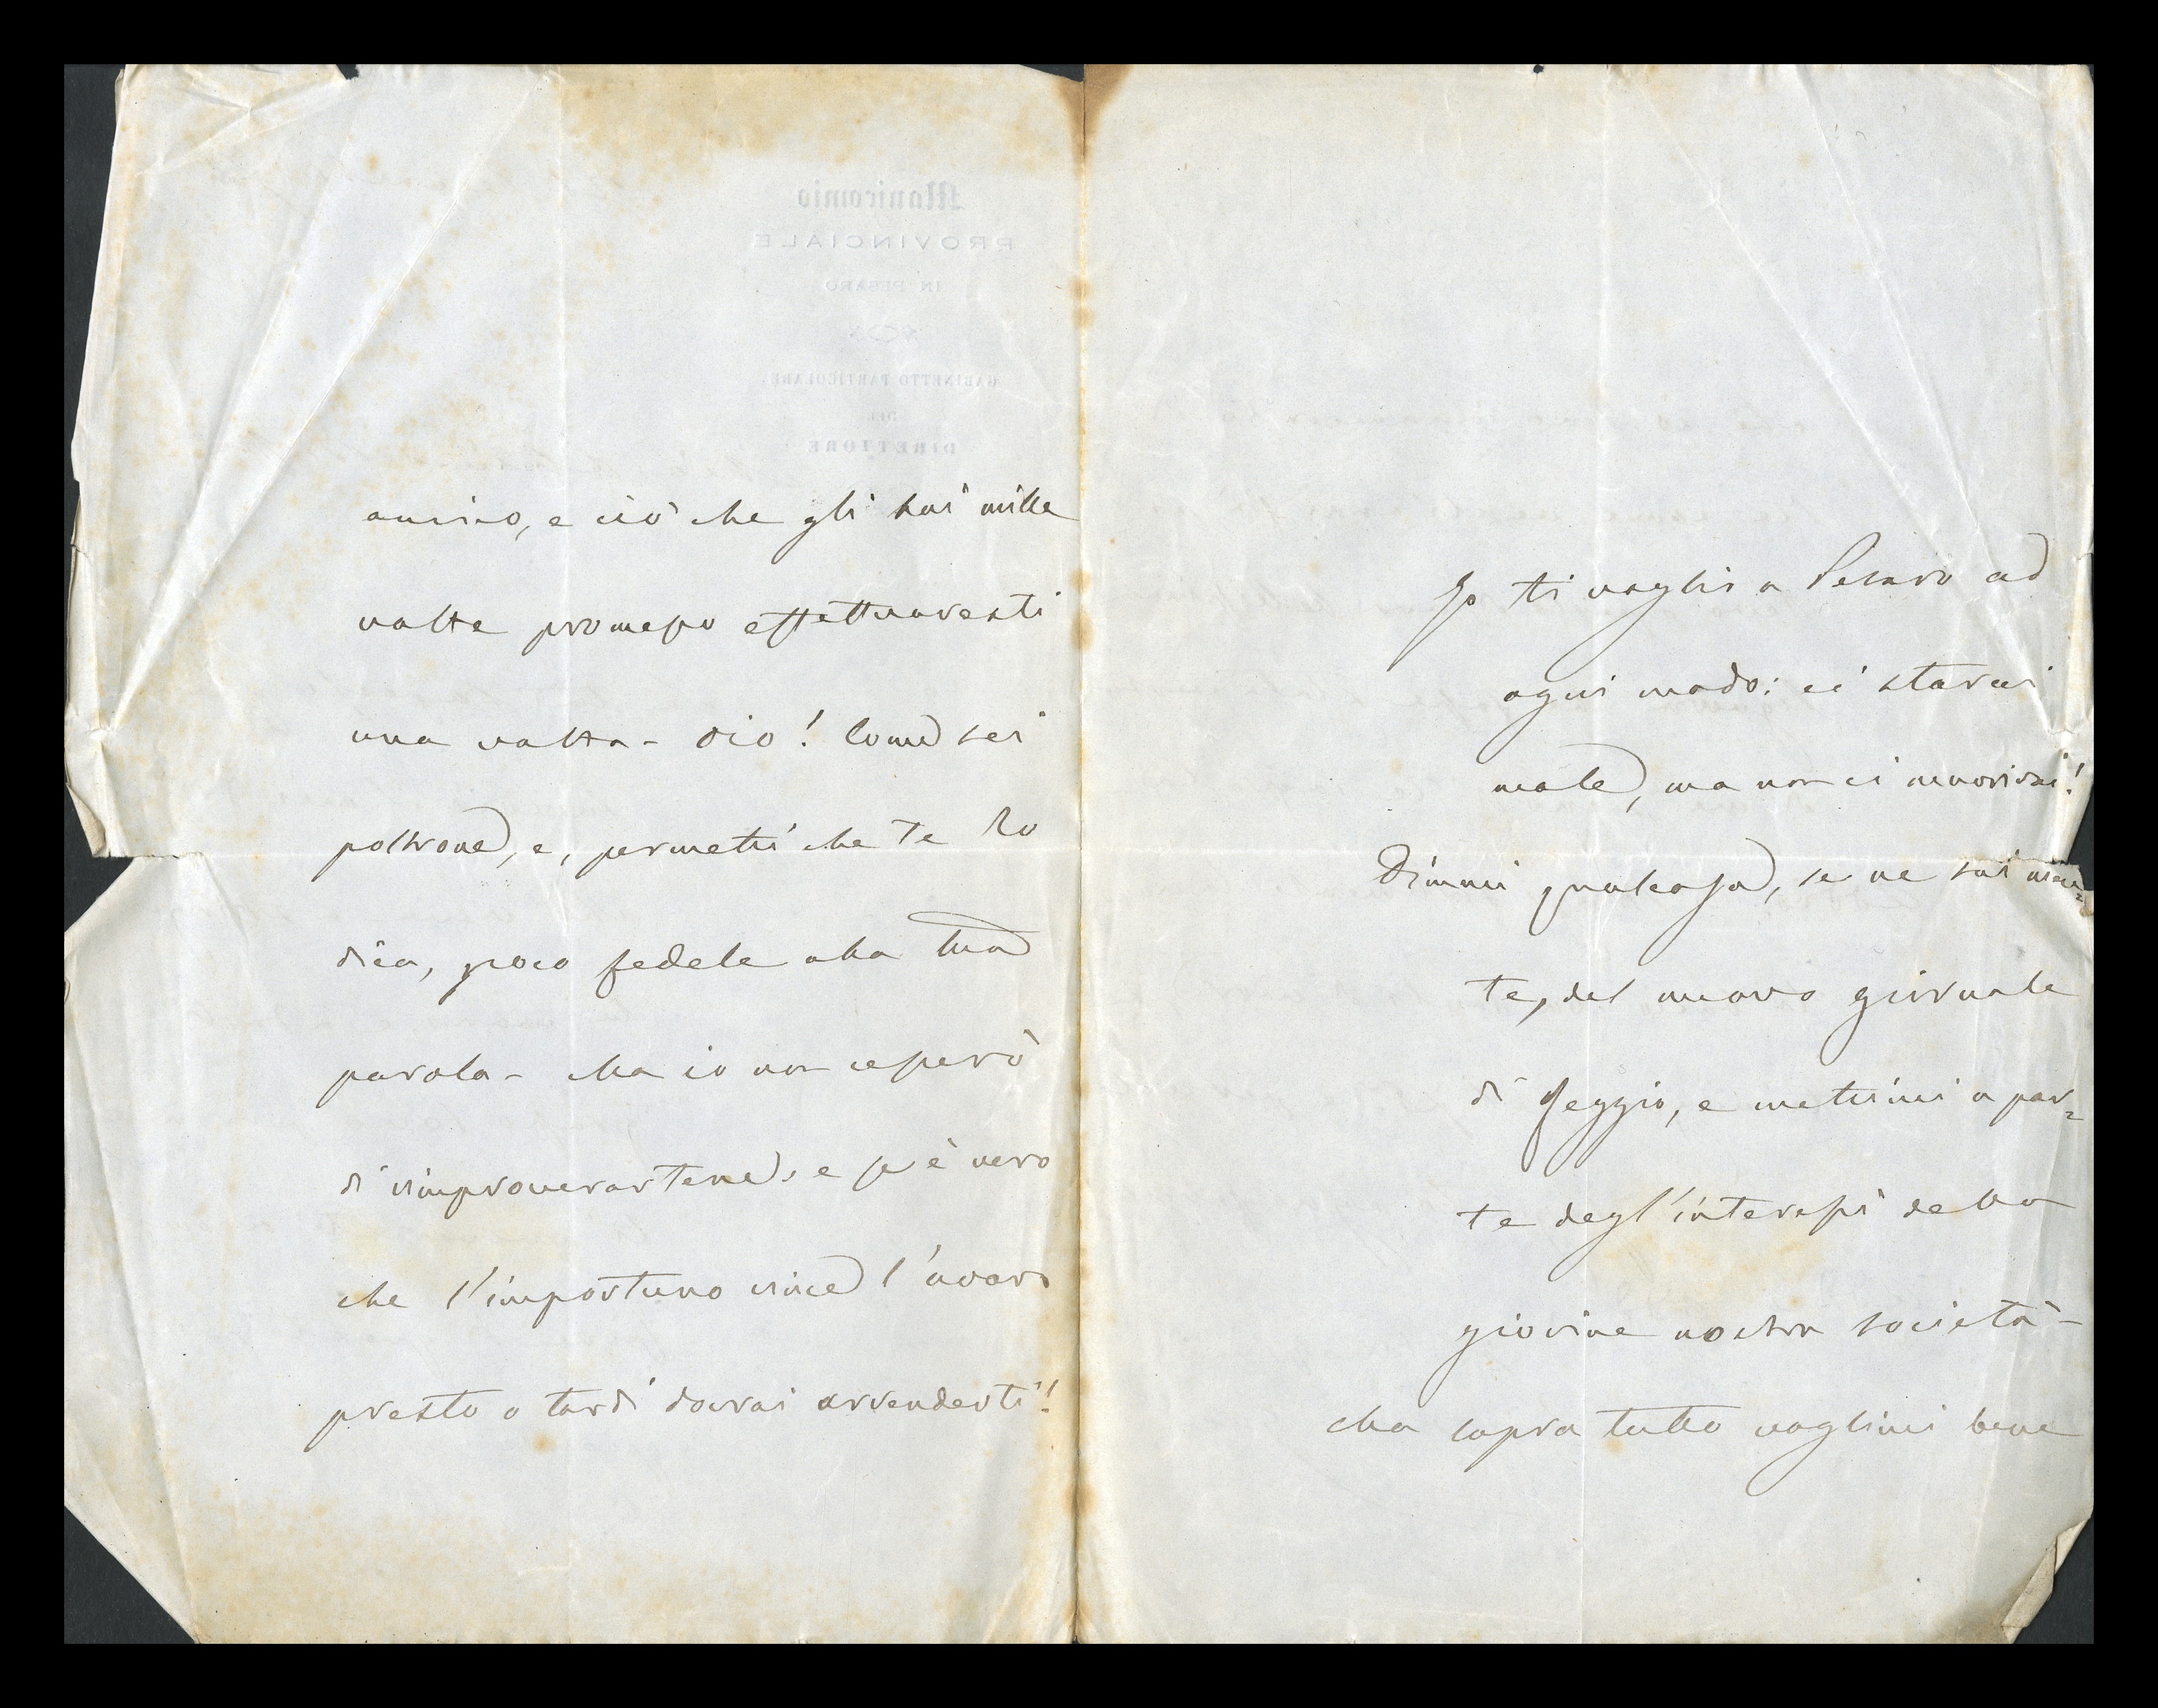 Manicomio
PROVINCIALE
IN PESARO
GABINETTO PARTICOLARE
DEL
DIRETTORE
amico, e ciò che gli hai mille
volte promesso effettuaresti
una volta - Dio! Come sei
poltrone, e, permetti che te lo
dica, poco fedele alla tua
parola - Ma io non cesserò
di rimproverartene, e se è vero
che l'importuno vince l'avaro
presto o tardi dovrai arrenderti!
Io ti voglio a Pesaro ad
ogni modo: ci starai
male, ma non ci morirai!
Dimmi qualcosa, se ne sai nien=
te, del nuovo giornale
di Reggio, e mettimi a par=
te degl'interessi della
giovine nostra società -
Ma sopra tutto voglimi bene